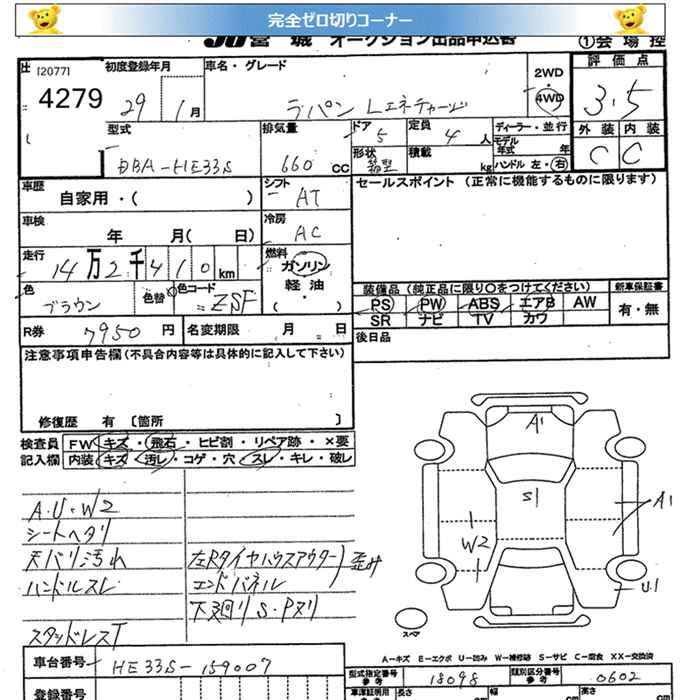 完全ゼロ切りコーナー
JU宮城 オークション出品申込書 ①会場控
[2077] 初度登録年月 車名・グレード 2WD 評価点
4279 29 1月 ラパン Lエネチャージ 4WD 3.5
型式 排気量 ドア 定員 ディーラー・並行 外装 内装
DBA-HE33S 660cc 5 4人 モデル年式 年 C C
形状 積載 kg ハンドル 左・右
箱型
車歴 シフト セールスポイント(正常に機能するものに限ります)
自家用・( ) AT
車検 冷房
年 月( 日) AC
走行 燃料
14万2千410km ガソリン
軽油
( )
色 色替 色コード
ブラウン ZSF
装備品(純正品に限り○をつけてください) 新車保証書
PS PW ABS エアB AW 有・無
SR ナビ TV カワ
R券 7950円 名変期限 月 日
後日品
注意事項申告欄(不具合内容等は具体的に記入して下さい)
修復歴 有 〔箇所 〕
検査員 FW キズ・飛石・ヒビ割・リペア跡・×要
記入欄 内装 キズ・汚レ・コゲ・穴・スレ・キレ・破レ
A.U.W2
シートヘタリ
天バリ汚れ 左Rタイヤハウスアウター 歪み
ハンドルスレ エンドパネル
下廻りS.Pヌリ
スタッドレスT
A1
S1
A1
W2
U1
スペア
A-キズ E-エクボ U-凹み W-補修跡 S-サビ C-腐食 XX-交換済
車台番号 HE33S-159007
型式指定番号 参考 18098 類別区分番号 参考 0602
登録番号
車庫証明用 長さ cm 幅 cm 高さ cm